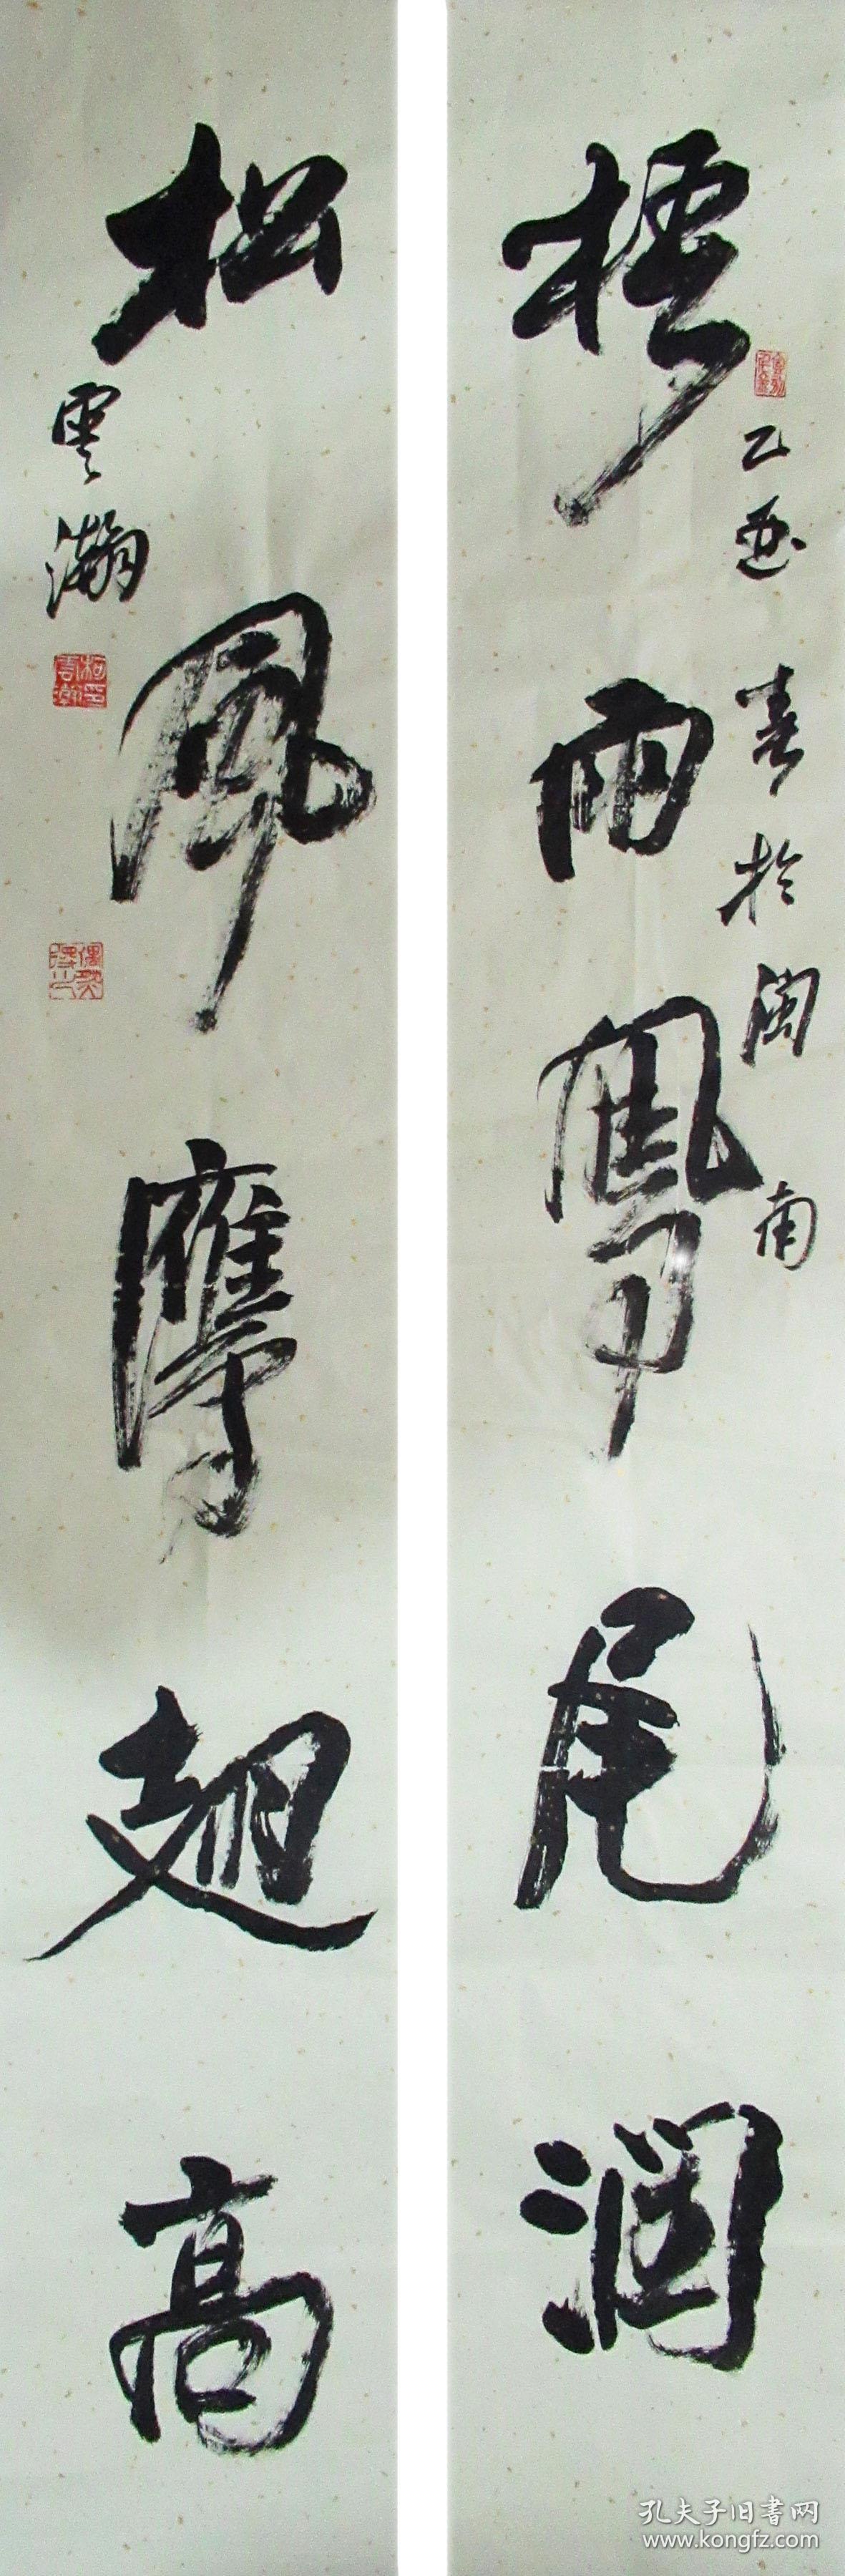 梧雨鳳尾润
乙酉春於闽南
松風鷹翅高
雲瀚
柯雲瀚印
孔夫子旧书网
www.kongfz.com